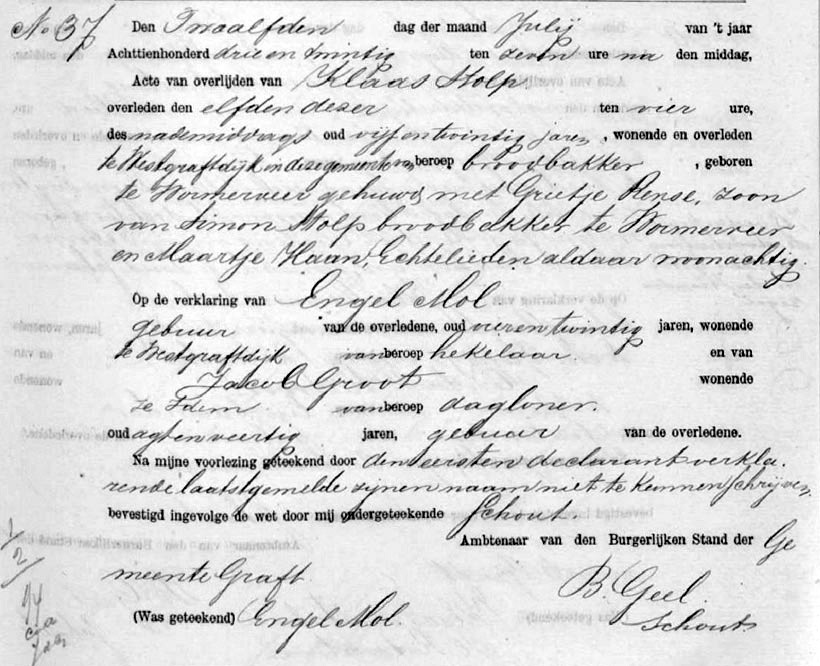 No 37 Den Twaalfden dag der maand Julij van 't jaar
Achttienhonderd drie en twintig ten zeven ure na den middag,
Acte van overlijden van Klaas Stolp
overleden den elfden dezer ten vier ure,
des nademiddags oud vijf en twintig jaren, wonende en overleden
te Westgraftdijk in deze gemeente van beroep broodbakker, geboren
te Wormerveer gehuwd met Grietje Rense, zoon
van Simon Stolp broodbakker te Wormerveer
en Maartje Haan, Echtelieden aldaar woonachtig.
Op de verklaring van Engel Mol
gebuur van de overledene, oud vier en twintig jaren, wonende
te Westgraftdijk van beroep hekelaar en van
Jacob Groot wonende
te Idem van beroep dagloner.
oud agt en veertig jaren, gebuur van de overledene.
Na mijne voorlezing geteekend door den eersten declarant verkla-
rende laatstgemelde zijnen naam niet te kunnen schrijven
bevestigd ingevolge de wet door mij ondergeteekende Schout.
Ambtenaar van den Burgerlijken Stand der Ge
meente Graft.
B. Geel
(Was geteekend) Engel Mol. Schout
1/2